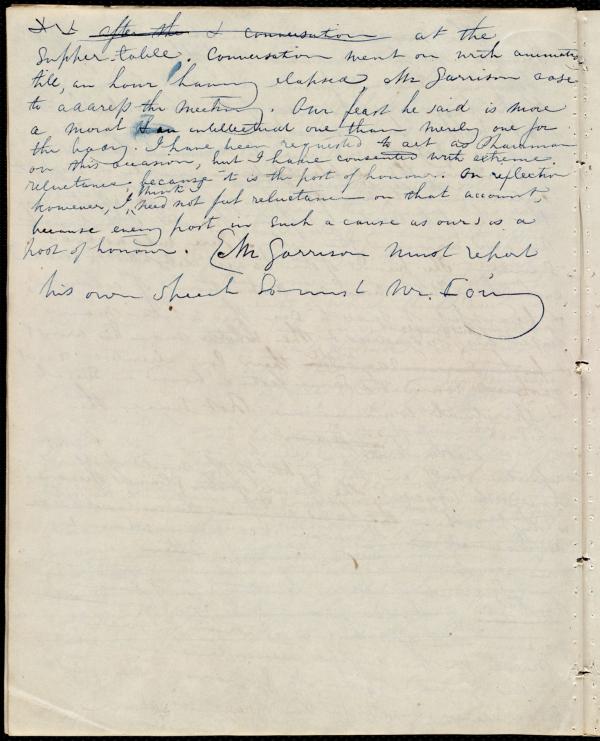 after the & conversation at the
Supper-table. Conversation went on with animation
till, an hour having elapsed, Mr Garrison arose
to address the meeting. Our feast he said is more
a moral & an intellectual one than merely one for
the body. I have been requested to act as Chairman
on this occasion, but I have consented with extreme
reluctance, because it is the post of honour. On reflection
however, I think I need not feel reluctance on that account,
because every post in such a cause as ours is a
post of honour. (Mr Garrison must report
his own speech So must Mr.